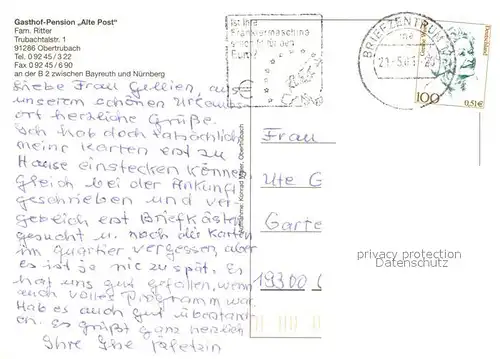 Gasthof-Pension „Alte Post“
Fam. Ritter
Trubachtalstr. 1
91286 Obertrubach
Tel. 0 92 45 / 3 22
Fax 0 92 45 / 6 90
an der B 2 zwischen Bayreuth und Nürnberg
Liebe Frau Gellien, aus
unserem schönen Urlaubs-
ort herzliche Grüße.
Ich hab doch tatsächlich
meine Karten erst zu
Hause einstecken können
gleich bei der Ankunft
geschrieben und ver-
gebeich erst Briefkästen
gesucht u. noch die Karten
im Quartier vergessen, aber
es ist ja nie zu spät. Es
hat uns gut gefallen, wenn
auch volles Programm war.
Hab es auch gut überstan-
en. Es grüßt ganz herzlich
Ihre Ilse
Ist Ihre
Frankiermaschine
schon für den
Euro?
BRIEFZENTRUM
100
0,51€
Aufnahme: Konrad Maier, Obertrubach
Frau
Ute G
Garte
19300
privacy protection
Datenschutz